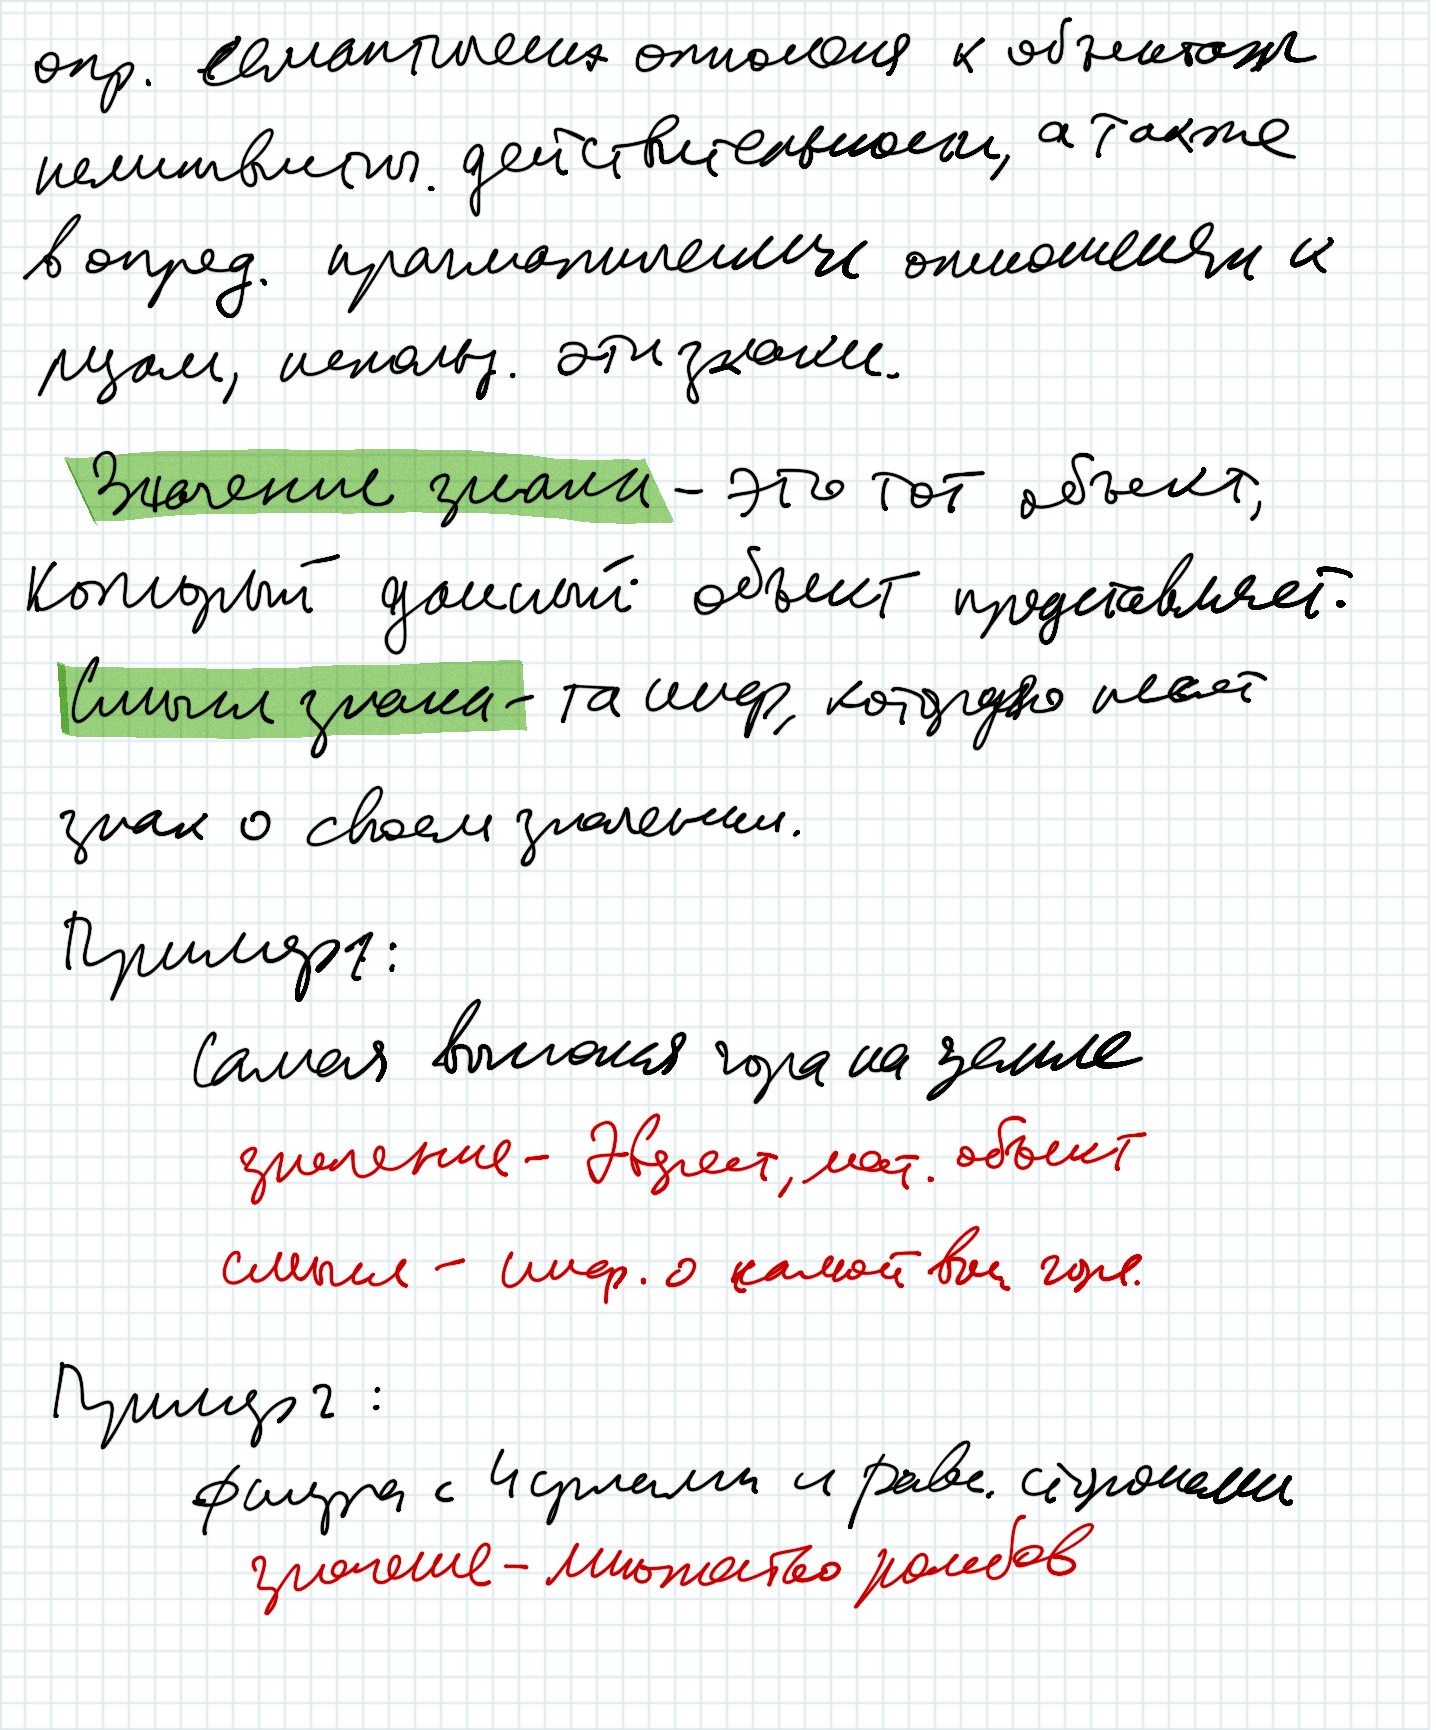 опр. семантических отношениях к объектам
нелингвистич. действительности, а также
в опред. прагматических отношениях к
лицам, использ. эти знаки.
Значение знака - это тот объект,
который данный объект представляет.
Смысл знака - та инф, которую несет
знак о своем значении.
Пример 1:
Самая высокая гора на земле
значение - Эверест, мат. объект
смысл - инф. о самой выс горе.
Пример 2:
фигура с 4 углами и равн. сторонами
значение - множество ромбов